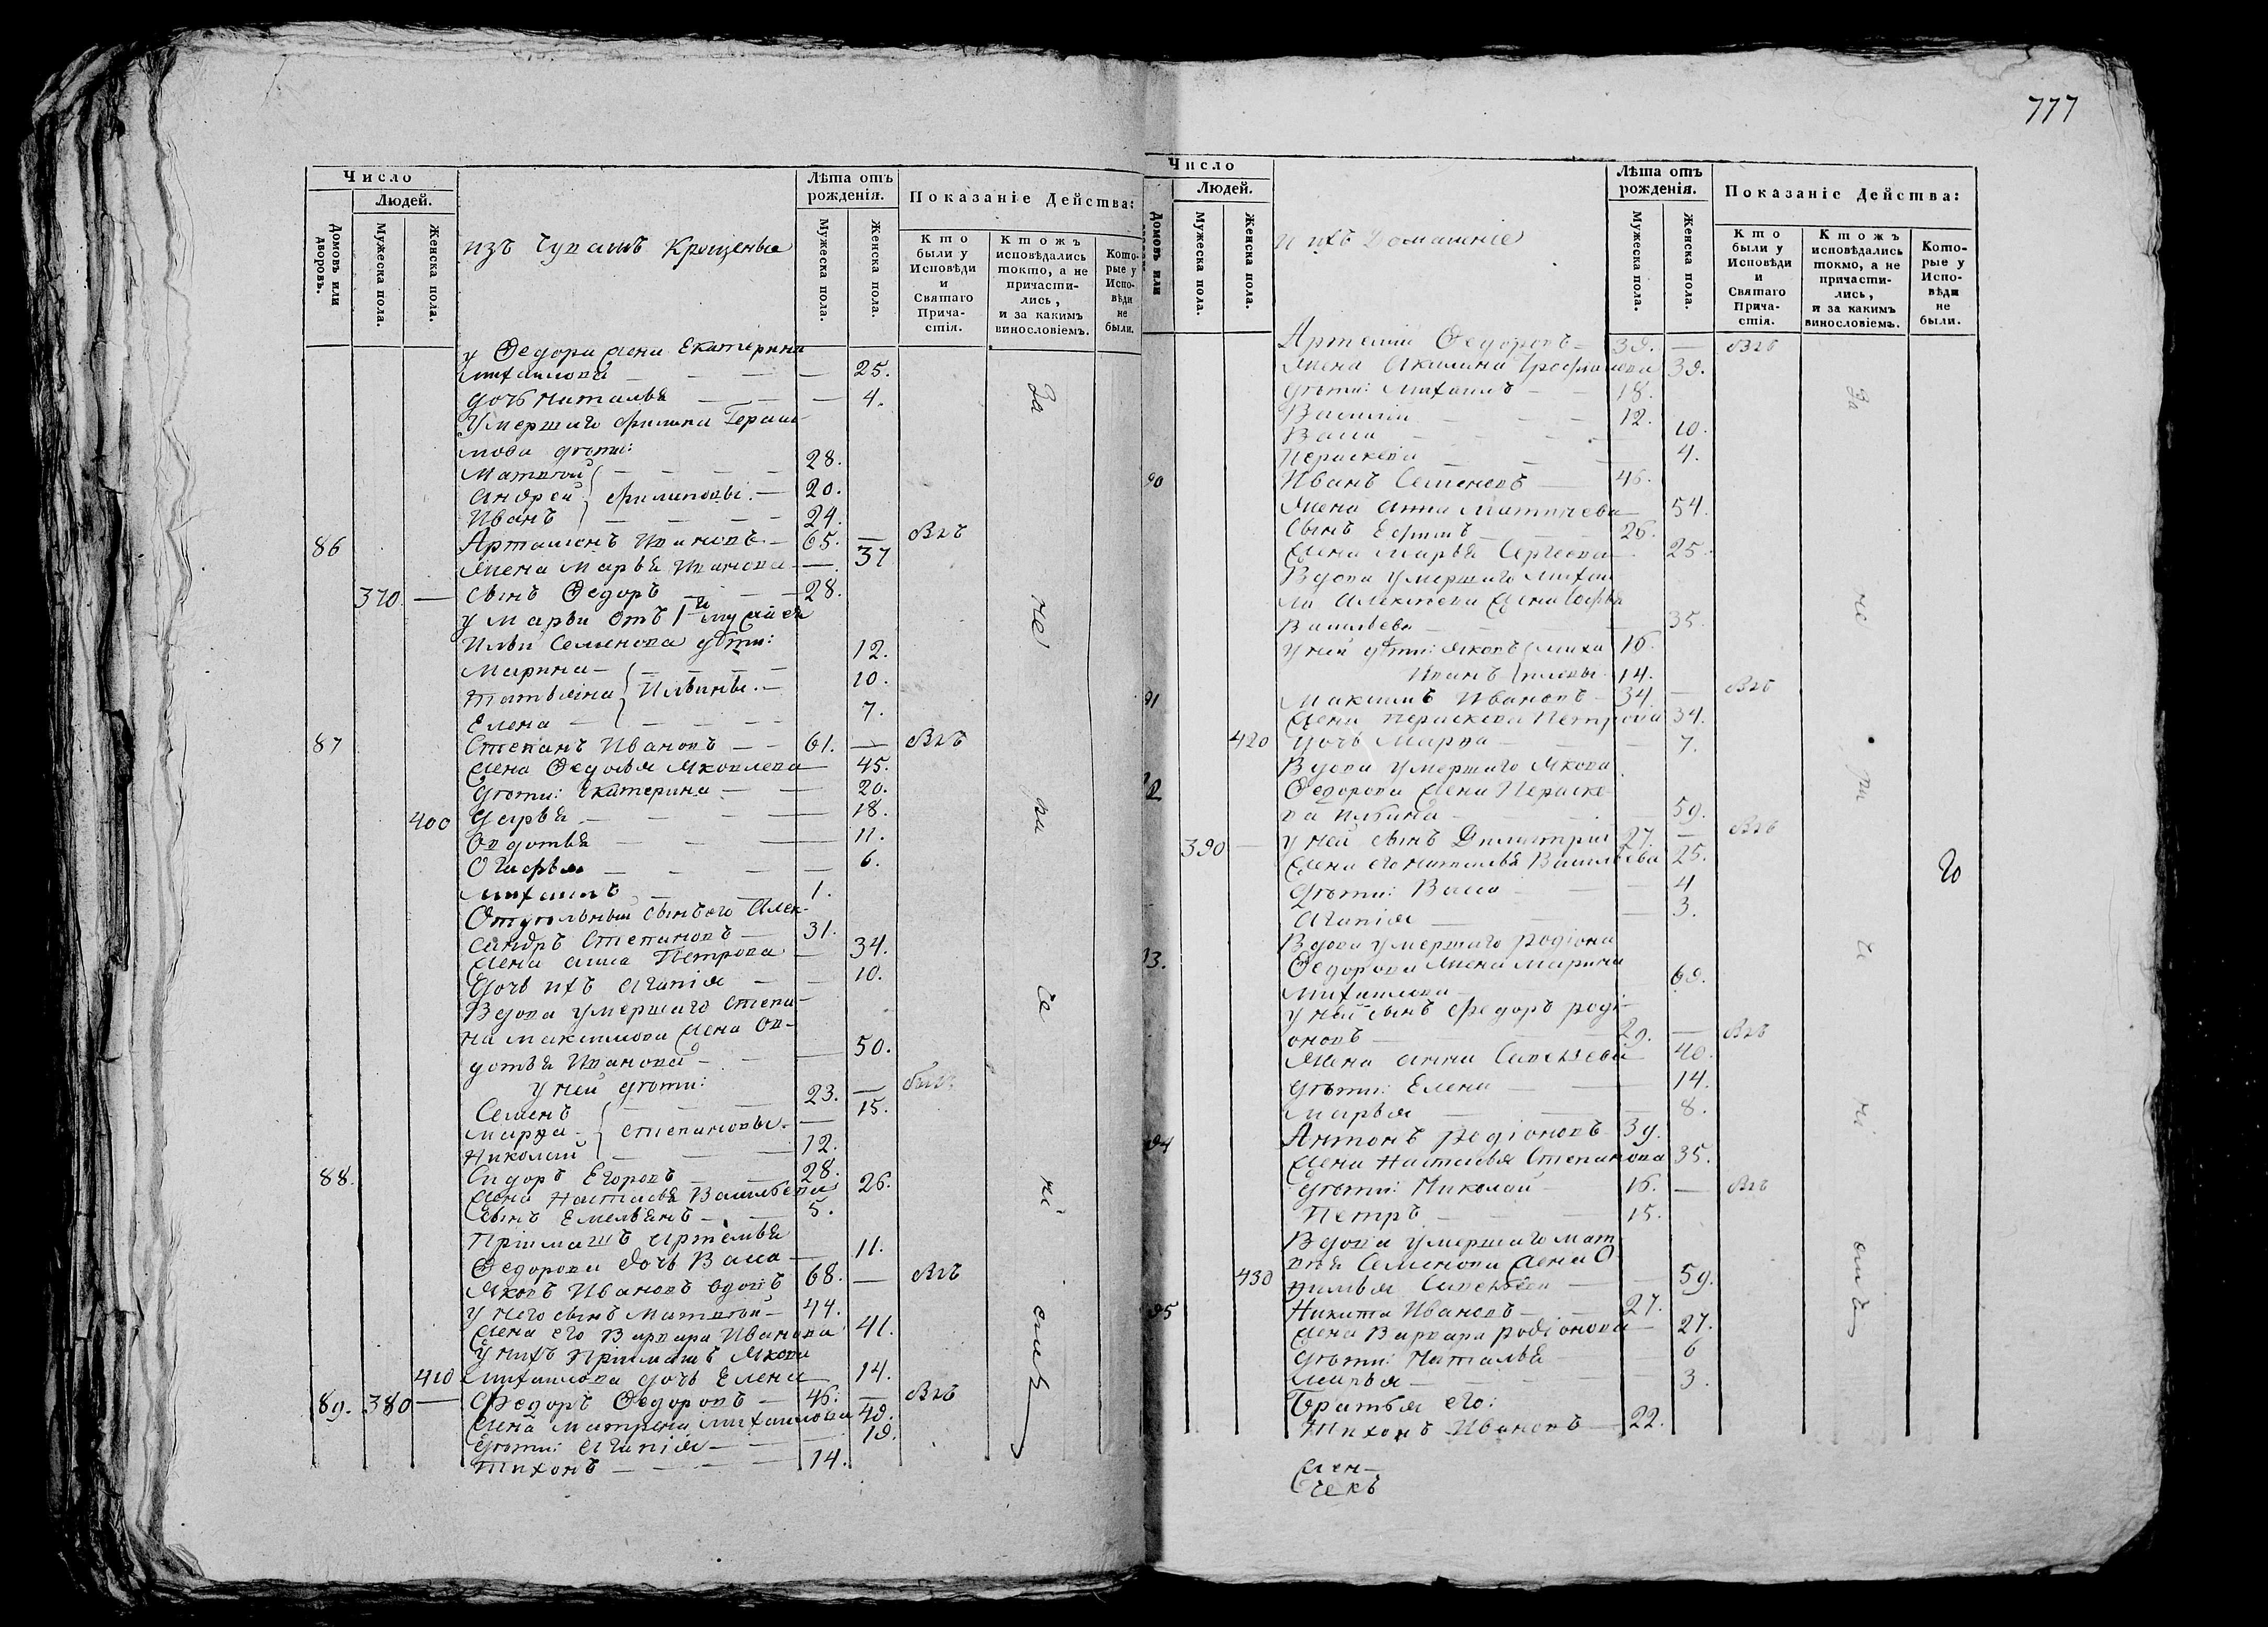 777
Число
Людей.
Домовъ или дворовъ.
Мужеска пола.
Женска пола.
изъ Чувашъ Крещеные
Лѣта отъ рожденія.
Мужеска пола.
Женска пола.
Показаніе Действа:
Кто были у Исповѣди и Святаго Причастія.
Ктожъ исповѣдались токмо, а не причастились, и за какимъ винословіемъ.
Которые у Исповѣди не были.
у Ѳедора жена Екатерина
Михаилова — 25.
дочь Наталья — 4.
Умершаго Филипа Гераси
мова дѣти:
Матвѣй — 28.
Андрей } Филиповы. — 20.
Иванъ — 24.
86 Артамонъ Ивановъ — 65. — Бнъ
Жена Марья Иванова — 37
370 — сынъ Ѳедоръ — 28.
у Марьи отъ 1го мужа ея
Ильи Семенова дѣти:
Марина — 12.
Татьяна } Ильины. — 10.
Елена — 7.
87 Степанъ Ивановъ — 61. —
жена Ѳедосья Яковлева 45.
дѣти: Екатерина — 20.
400 Дарья — 18.
Овдотья — 11.
6.
Михаилъ — 1.
Отдѣльный сынъ его Алек-
сандръ Степановъ — 31.
жена Анна Петрова — 34.
дочь ихъ Агапія — 10.
Вдова умершаго Степа-
на Максимова жена Ов-
дотья Иванова — 50.
у ней дѣти:
Семенъ — 23. —
Марѳа } Степановы. — 15.
Николай — 12.
88. Сидоръ Егоровъ — 28.
жена Настасья Васильева 26.
сынъ Емельянъ — 5.
Пріимашъ Артемья
Ѳедорова дочь Васса — 11.
Яковъ Ивановъ вдовъ 68. —
у него сынъ Матвѣй — 44.
жена его Варвара Иванова 41.
у нихъ пріимашъ Якова
410 Михаилова дочь Елена 14.
89. 380 — Федоръ Ѳедоровъ — 46. —
жена Матрена Михаилова 49.
дѣти: Агапія — 19.
Тихонъ — 14.
За не при ча ст
Число
Людей.
Домовъ или
Мужеска пола.
Женска пола.
и ихъ Домашніе
Лѣта отъ рожденія.
Мужеска пола.
Женска пола.
Показаніе Действа:
Кто были у Исповѣди и Святаго Причастія.
Ктожъ исповѣдались токмо, а не причастились, и за какимъ винословіемъ.
Которые у Исповѣди не были.
Артемій Ѳедоровъ — 39. —
Жена Акилина Трофимова 39.
дѣти: Михаилъ — 18.
Василій — 12.
Васса — 10.
Пераскева — 4.
90 Иванъ Семеновъ — 46.
Жена Анна Матвѣева 54.
Сынъ Ефимъ — 26.
Жена Марья Сергѣева — 25.
Вдова умершаго Михаи
ла Алексѣева жена Софья
Васильева — 35.
у ней дѣти: Яковъ } Миха 16.
Иванъ } иловы. 14.
91 Максимъ Ивановъ — 34. —
жена Пераскева Петрова 34.
420 дочь Марѳа — 7.
Вдова умершаго Якова
Ѳедорова жена Пераске
ва Ильина — 59.
390 — у ней сынъ Димитрій 27. —
жена его Наталья Васильева 25.
дѣти: Васса — 4
Агапія — 3.
Вдова умершаго Родіона
93. Ѳедорова жена Марина
Михаилова — 69.
у ней сынъ Федоръ Роді-
оновъ — 29. —
Жена Анна Савельева 40.
дѣти: Елена — 14.
Марья — 8.
94 Антонъ Родіоновъ 39.
жена Настасья Степанова 35.
дѣти: Николай — 16. —
Петръ — 15.
Вдова умершаго Мат
вѣя Семенова жена
430 59.
95 Никита Ивановъ — 27.
жена Варвара Родіонова 27.
дѣти: Наталья — 6
Марья — 3.
Братья его:
Тихонъ Ивановъ — 22.
За не при